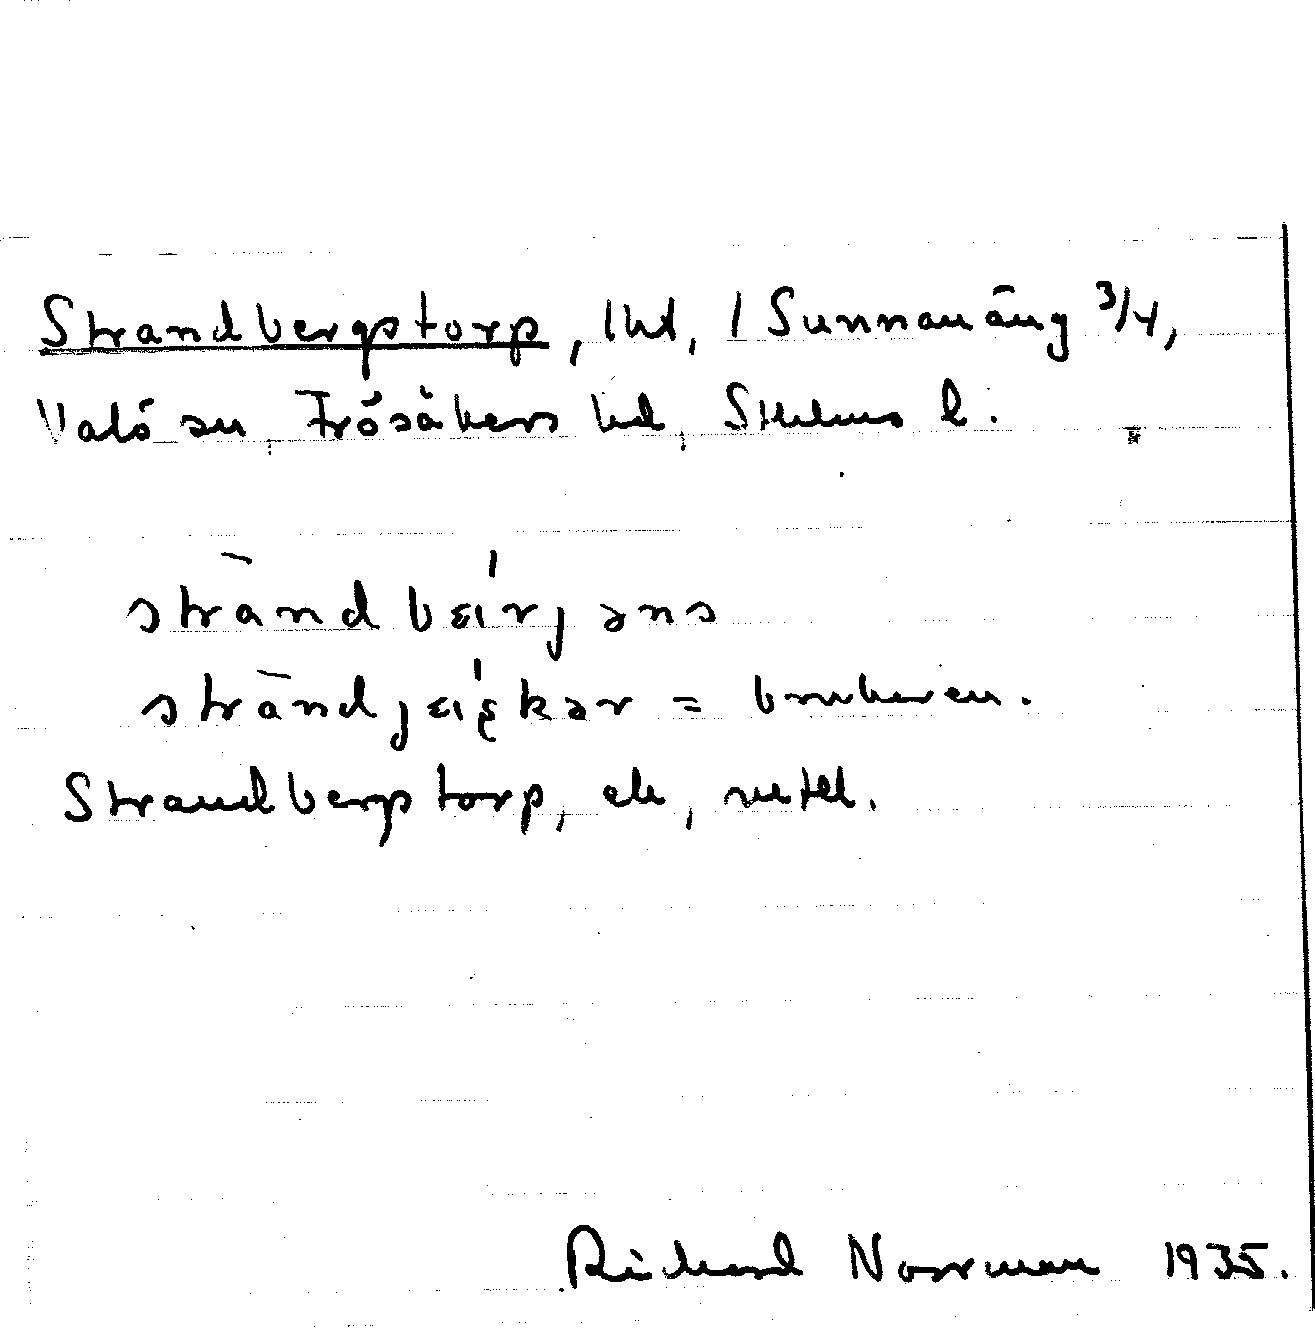 Strandbergstorp, lht, / Sunnanäng 3/4,
Valö sn, Frösåkers hd, Sthlms l.
strandbɛirjəns
strandjɛiskər = brukaren.
Strandbergstorp, ek,
Richard Norrman 1935.